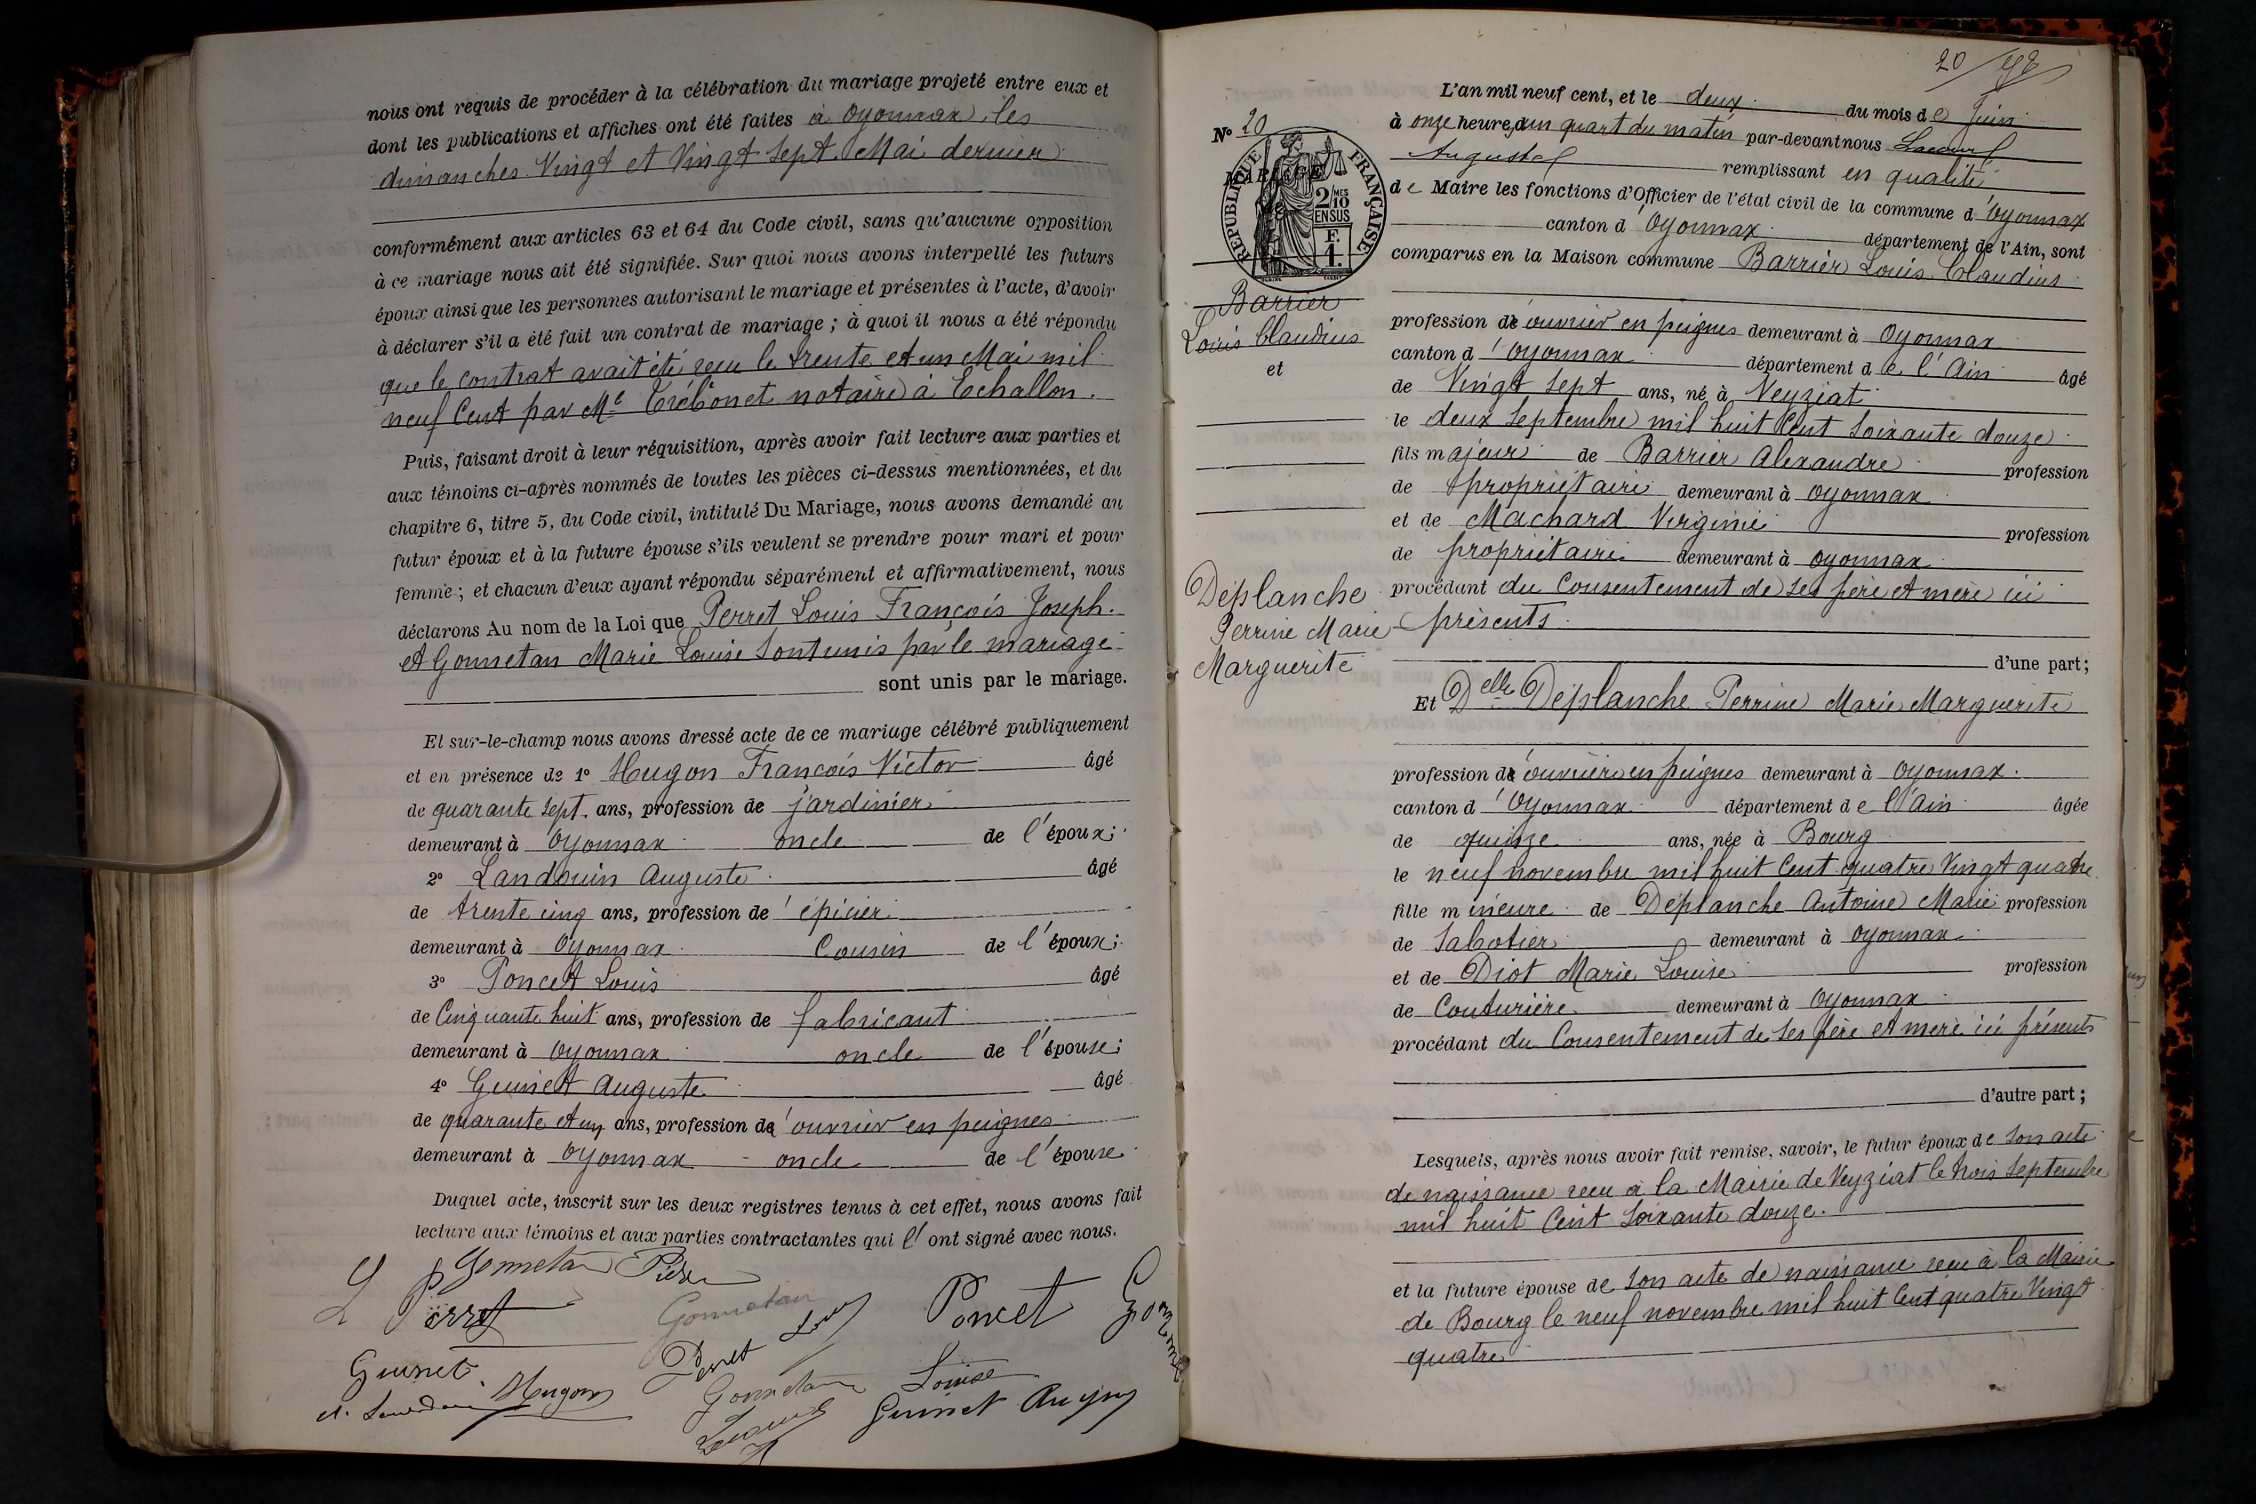 nous ont requis de procéder à la célébration du mariage projeté entre eux et
dont les publications et affiches ont été faites à Oyonnax, les
dimanches Vingt et Vingt sept Mai dernier
conformément aux articles 63 et 64 du Code civil, sans qu'aucune opposition
à ce mariage nous ait été signifiée. Sur quoi nous avons interpellé les futurs
époux ainsi que les personnes autorisant le mariage et présentes à l'acte, d'avoir
à déclarer s'il a été fait un contrat de mariage ; à quoi il nous a été répondu
que le contrat avait été reçu le trente et un Mai mil
neuf Cent par Me notaire à Echallon.
Puis, faisant droit à leur réquisition, après avoir fait lecture aux parties et
aux témoins ci-après nommés de toutes les pièces ci-dessus mentionnées, et du
chapitre 6, titre 5, du Code civil, intitulé Du Mariage, nous avons demandé au
futur époux et à la future épouse s'ils veulent se prendre pour mari et pour
femme ; et chacun d'eux ayant répondu séparément et affirmativement, nous
déclarons Au nom de la Loi que Perret Louis François Joseph
et Gonnetan Marie Louise sont unis par le mariage
sont unis par le mariage.
Et sur-le-champ nous avons dressé acte de ce mariage célébré publiquement
et en présence de 1° Hugon François Victor âgé
de quarante sept ans, profession de jardinier
demeurant à Oyonnax oncle de l'époux ;
2° Landouin Auguste âgé
de trente cinq ans, profession de épicier
demeurant à Oyonnax Cousin de l'époux ;
3° Poncet Louis âgé
de Cinquante huit ans, profession de fabricant
demeurant à Oyonnax oncle de l'épouse ;
4° Guinet Auguste âgé
de quarante et un ans, profession d'ouvrier en peignes
demeurant à Oyonnax oncle de l'épouse
Duquel acte, inscrit sur les deux registres tenus à cet effet, nous avons fait
lecture aux témoins et aux parties contractantes qui l'ont signé avec nous.
Gonnetan
L Perret Gonnetan Poncet
Guinet Perret
Hugon Gonnetan Louise
Guinet
20
N° 20
MARIAGE
RÉPUBLIQUE FRANÇAISE
2/10 MES
EN SUS
F.
1.
Barrier
Louis Claudius
et
Déplanche
Perrine Marie
Marguerite
L'an mil neuf cent, et le deux du mois de Juin
à onze heures un quart du matin par-devant nous Lacour
Auguste remplissant en qualité
de Maire les fonctions d'Officier de l'état civil de la commune d'Oyonnax
canton d'Oyonnax département de l'Ain, sont
comparus en la Maison commune Barrier Louis Claudius
profession d'ouvrier en peignes demeurant à Oyonnax
canton d'Oyonnax département de l'Ain âgé
de Vingt sept ans, né à Veyziat
le deux Septembre mil huit Cent soixante douze
fils majeur de Barrier Alexandre profession
de propriétaire demeurant à Oyonnax
et de Machard Virginie profession
de propriétaire demeurant à Oyonnax
procédant du Consentement de ses père et mère ici
présents
d'une part ;
Et Delle Déplanche Perrine Marie Marguerite
profession d'ouvrière en peignes demeurant à Oyonnax
canton d'Oyonnax département de l'Ain âgée
de quinze ans, née à Bourg
le neuf novembre mil huit Cent quatre Vingt quatre
fille mineure de Déplanche Antoine Marie profession
de Sabotier demeurant à Oyonnax
et de Diot Marie Louise profession
de Couturière demeurant à Oyonnax
procédant du Consentement de ses père et mère ici présents
d'autre part ;
Lesquels, après nous avoir fait remise, savoir, le futur époux de son acte
de naissance reçu à la Mairie de Veyziat le trois Septembre
mil huit Cent soixante douze.
et la future épouse de son acte de naissance reçu à la Mairie
de Bourg le neuf novembre mil huit Cent quatre Vingt
quatre